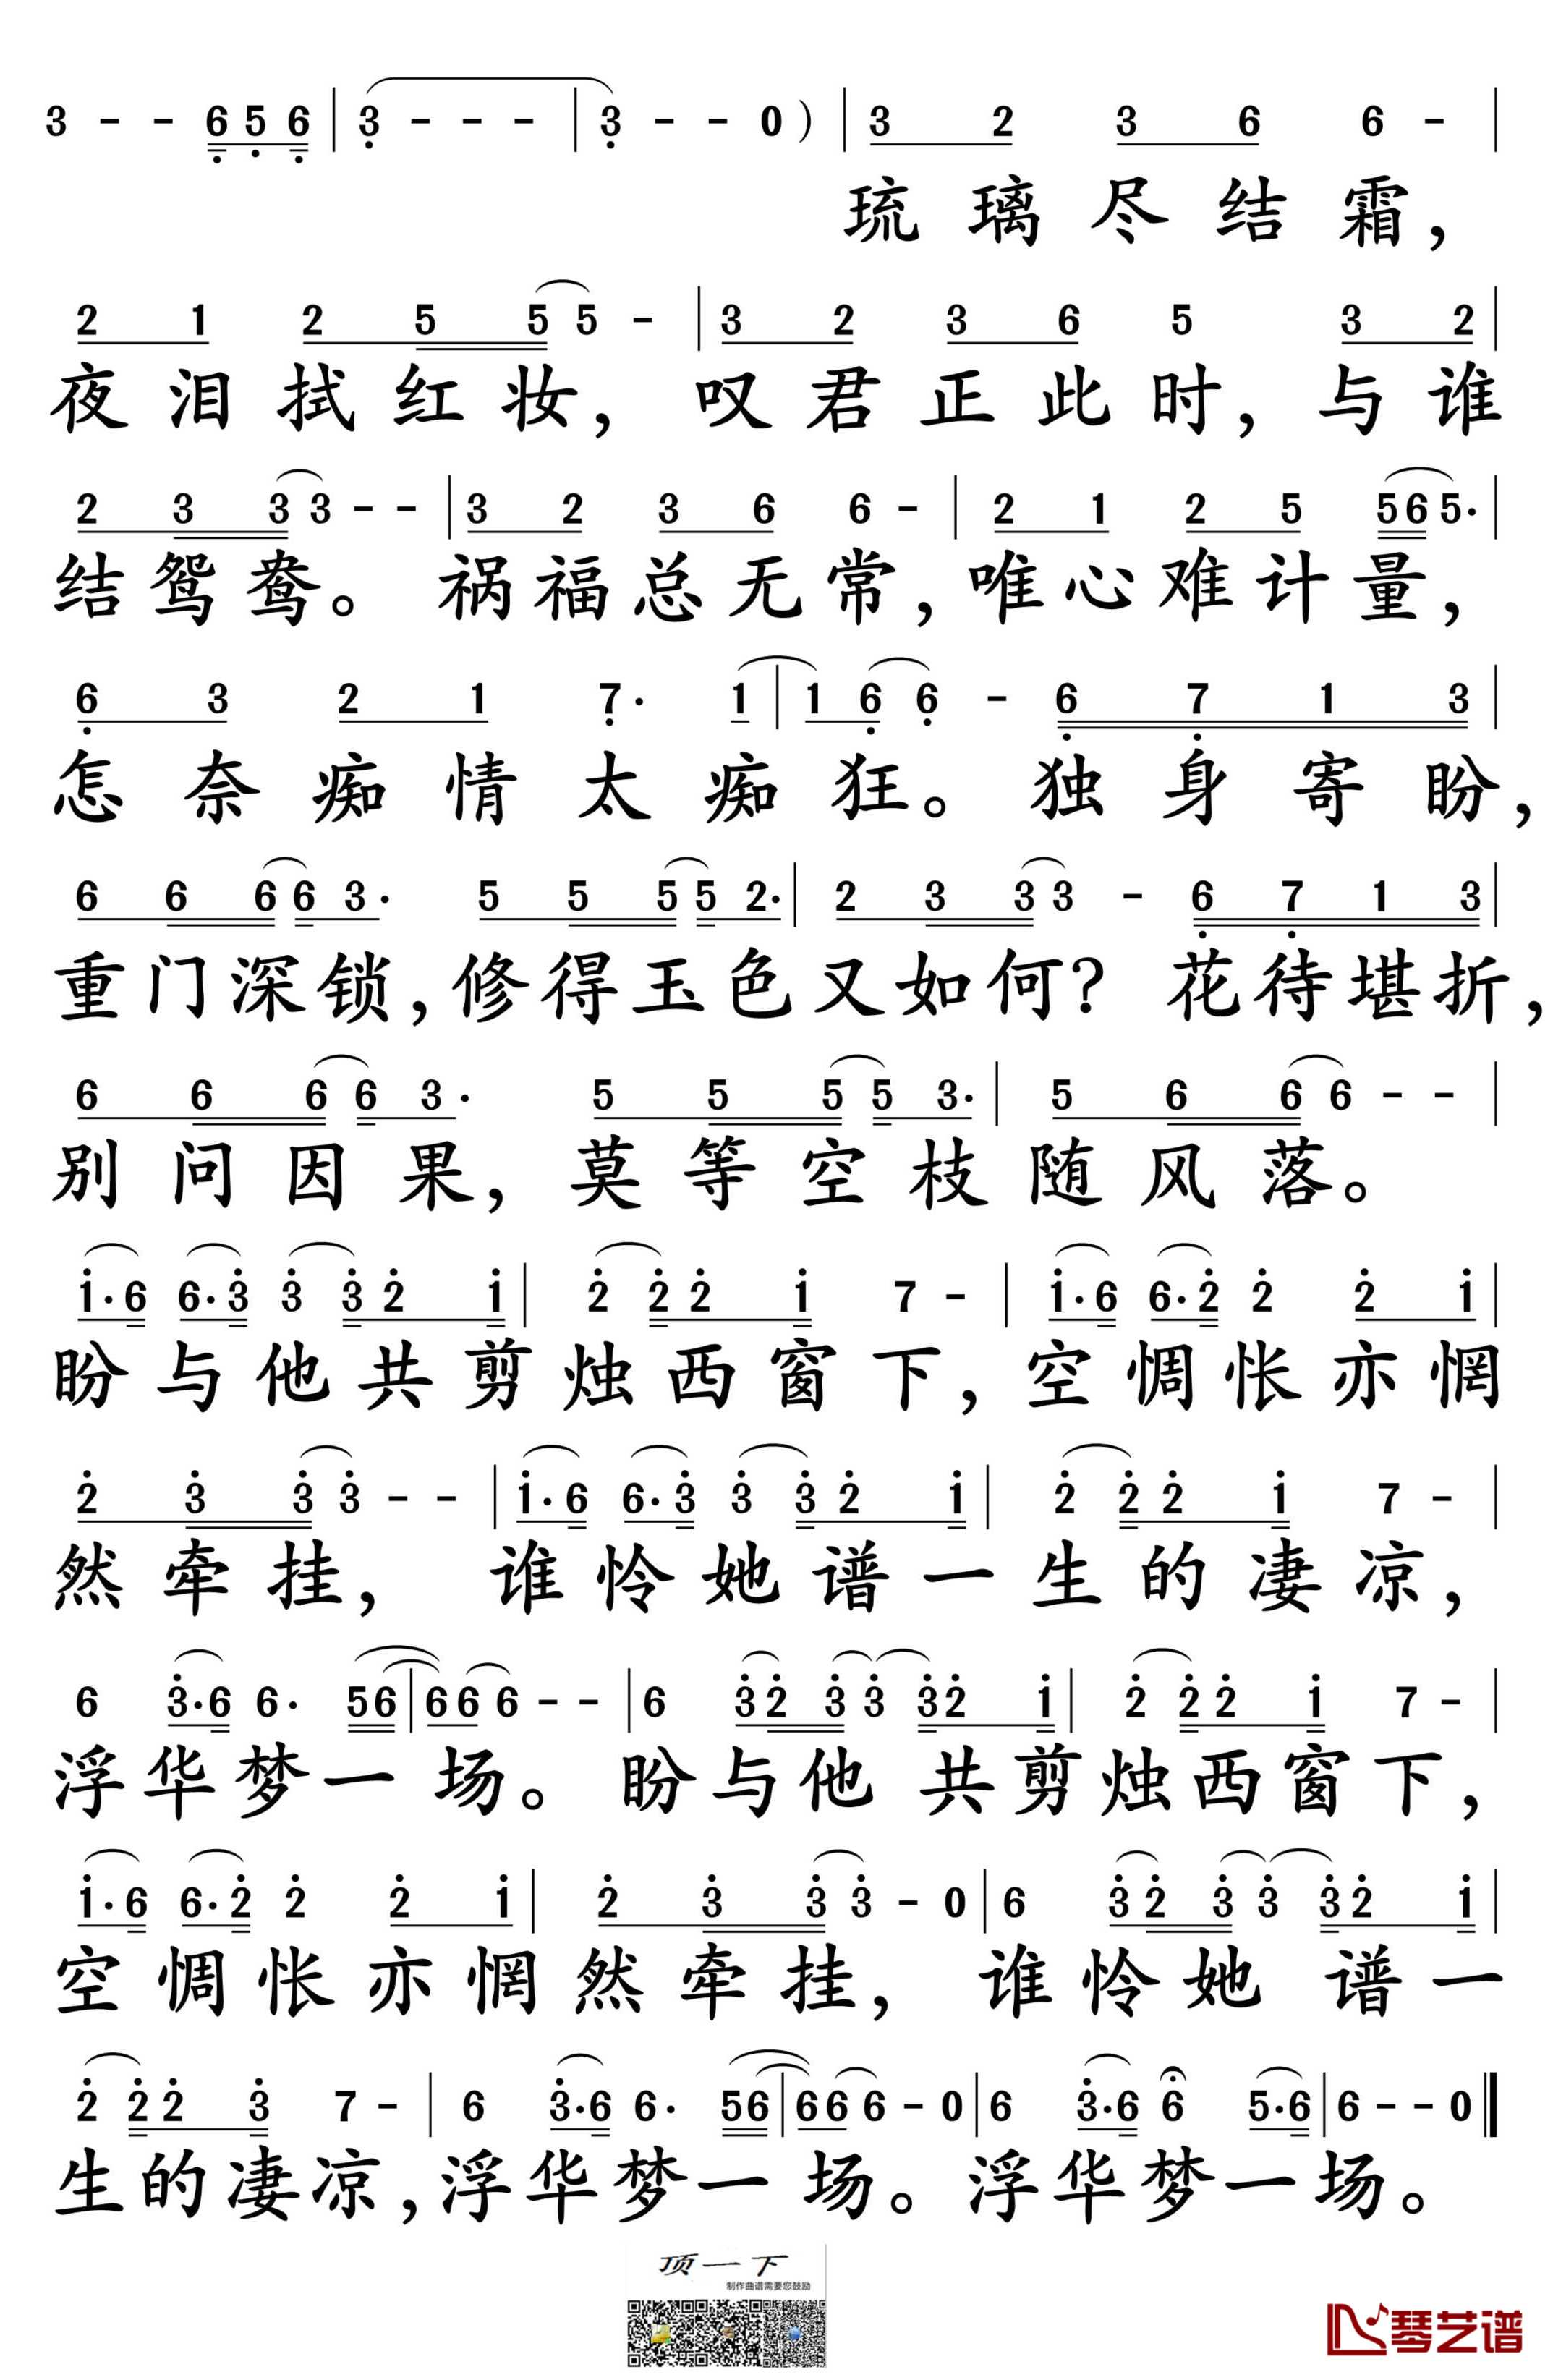 3 - - 6 5 6 | 3 - - - | 3 - - 0 ) | 3 2 3 6 6 - |
琉璃尽结霜，
2 1 2 5 5 5 - | 3 2 3 6 5 3 2 |
夜泪拭红妆，叹君正此时，与谁
2 3 3 3 - - | 3 2 3 6 6 - | 2 1 2 5 5 6 5· |
结鸳鸯。祸福总无常，唯心难计量，
6 3 2 1 7· 1 | 1 6 6 - 6 7 1 3 |
怎奈痴情太痴狂。独身寄盼，
6 6 6 6 3· 5 5 5 5 2· | 2 3 3 3 - 6 7 1 3 |
重门深锁，修得玉色又如何？花待堪折，
6 6 6 6 3· 5 5 5 5 3· | 5 6 6 6 - - |
别问因果，莫等空枝随风落。
1·6 6·3 3 3 2 1 | 2 2 2 1 7 - | 1·6 6·2 2 2 1 |
盼与他共剪烛西窗下，空惆怅亦惘
2 3 3 3 - - | 1·6 6·3 3 3 2 1 | 2 2 2 1 7 - |
然牵挂，谁怜她谱一生的凄凉，
6 3·6 6· 5 6 | 6 6 6 - - | 6 3 2 3 3 3 2 1 | 2 2 2 1 7 - |
浮华梦一场。盼与他共剪烛西窗下，
1·6 6·2 2 2 1 | 2 3 3 3 - 0 | 6 3 2 3 3 3 2 1 |
空惆怅亦惘然牵挂，谁怜她谱一
2 2 2 3 7 - | 6 3·6 6· 5 6 | 6 6 6 - 0 | 6 3·6 6 5·6 | 6 - - 0 ‖
生的凄凉，浮华梦一场。浮华梦一场。
顶一下
制作曲谱需要您鼓励
琴艺谱